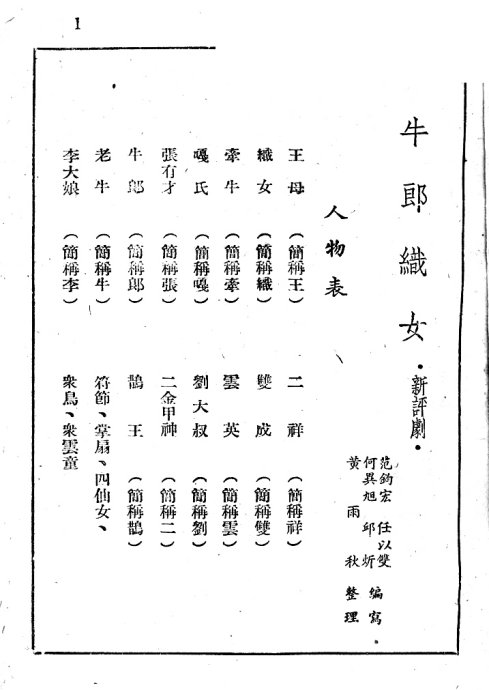 1
牛郎織女·新評劇·
范鈞宏 任以雙
何異旭 邱炘 編寫
黄雨秋 整理
人物表
王母（簡稱王） 二祥（簡稱祥）
織女（簡稱織） 雙成（簡稱雙）
牽牛（簡稱牽） 雲英（簡稱雲）
嘎氏（簡稱嘎） 劉大叔（簡稱劉）
張有才（簡稱張） 二金甲神（簡稱二）
牛郎（簡稱郎） 鵲王（簡稱鵲）
老牛（簡稱牛） 符節、掌扇、四仙女、
李大娘（簡稱李） 衆鳥、衆雲童